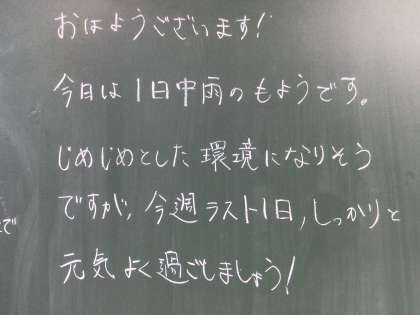 おはようございます!
今日は1日中雨のもようです。
じめじめとした環境になりそう
ですが、今週ラスト1日,しっかりと
元気よく過ごしましょう!